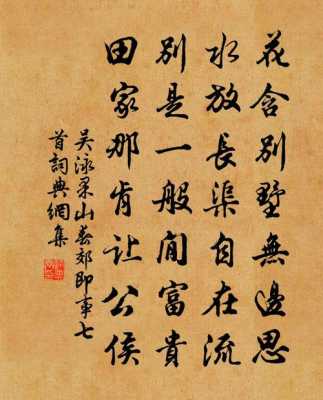 花含別墅無邊思
水放長渠自在流
別是一般閒富貴
田家那肯讓公侯
吴泳果山春郊即事七
首詞典網集